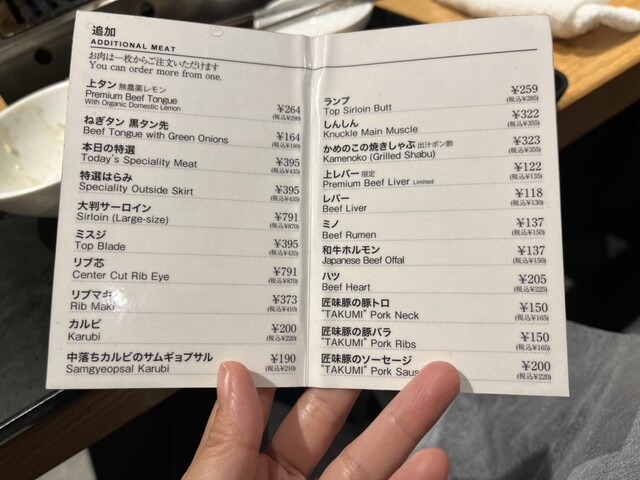 追加
ADDITIONAL MEAT
お肉は一枚からご注文いただけます
You can order more from one.
上タン 無農薬レモン
Premium Beef Tongue
With Organic Domestic Lemon
¥264
(税込¥290)
ねぎタン 黒タン先
Beef Tongue with Green Onions
¥164
(税込¥180)
本日の特選
Today's Speciality Meat
¥395
(税込¥435)
特選はらみ
Speciality Outside Skirt
¥395
(税込¥435)
大判サーロイン
Sirloin (Large-size)
¥791
(税込¥870)
ミスジ
Top Blade
¥395
(税込¥435)
リブ芯
Center Cut Rib Eye
¥791
(税込¥870)
リブマキ
Rib Maki
¥373
(税込¥410)
カルビ
Karubi
¥200
(税込¥220)
中落ちカルビのサムギョプサル
Samgyeopsal Karubi
¥190
(税込¥210)
ランプ
Top Sirloin Butt
¥259
(税込¥285)
しんしん
Knuckle Main Muscle
¥322
(税込¥355)
かめのこの焼きしゃぶ 出汁ポン酢
Kamenoko (Grilled Shabu)
¥323
(税込¥355)
上レバー 限定
Premium Beef Liver Limited
¥122
(税込¥135)
レバー
Beef Liver
¥118
(税込¥130)
ミノ
Beef Rumen
¥137
(税込¥150)
和牛ホルモン
Japanese Beef Offal
¥137
(税込¥150)
ハツ
Beef Heart
¥205
(税込¥225)
匠味豚の豚トロ
"TAKUMI" Pork Neck
¥150
(税込¥165)
匠味豚の豚バラ
"TAKUMI" Pork Ribs
¥150
(税込¥165)
匠味豚のソーセージ
"TAKUMI" Pork Saus
¥200
(税込¥220)